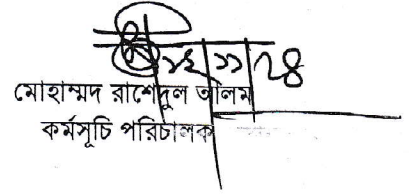 ২২/১১/২৪
মোহাম্মদ রাশেদুল আলম
কর্মসূচি পরিচালক